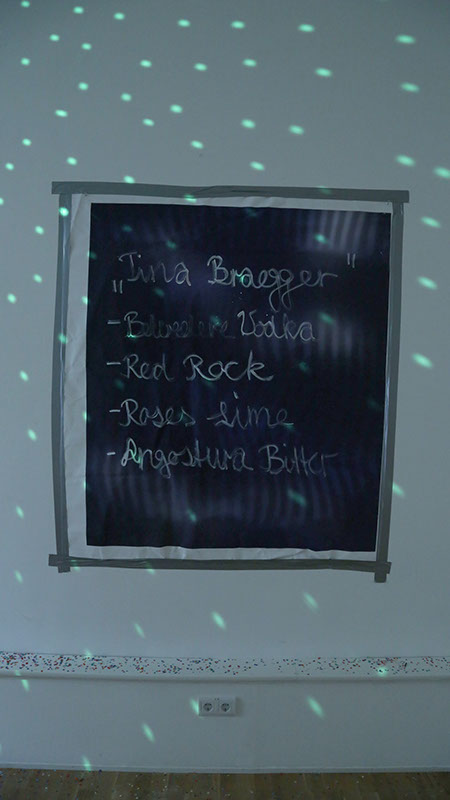 „Tina Braegger"
-Belvedere Vodka
-Red Rock
-Roses Lime
-Angostura Bitter